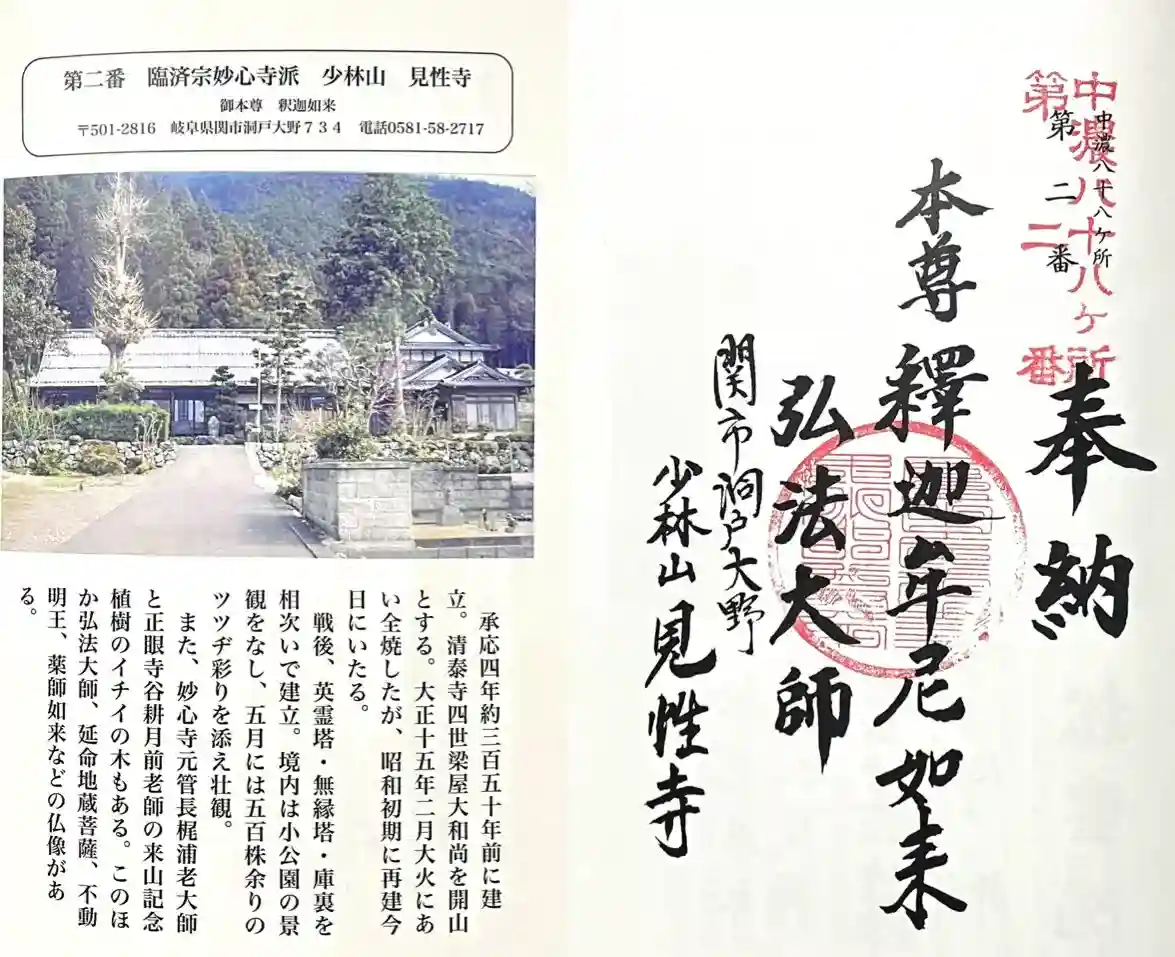 第二番 臨済宗妙心寺派 少林山 見性寺
御本尊 釈迦如来
〒501-2816 岐阜県関市洞戸大野734 電話0581-58-2717
承応四年約三百五十年前に建
立。清泰寺四世梁屋大和尚を開山
とする。大正十五年二月大火にあ
い全焼したが、昭和初期に再建今
日にいたる。
戦後、英霊塔・無縁塔・庫裏を
相次いで建立。境内は小公園の景
観をなし、五月には五百株余りの
ツツヂ彩りを添え壮観。
また、妙心寺元管長梶浦老大師
と正眼寺谷耕月前老師の来山記念
植樹のイチイの木もある。このほ
か弘法大師、延命地蔵菩薩、不動
明王、薬師如来などの仏像があ
る。
中濃八十八ヶ所
第二番
中濃八十八ケ所
第二番
奉納
本尊釋迦牟尼如来
弘法大師
関市洞戸大野
少林山見性寺